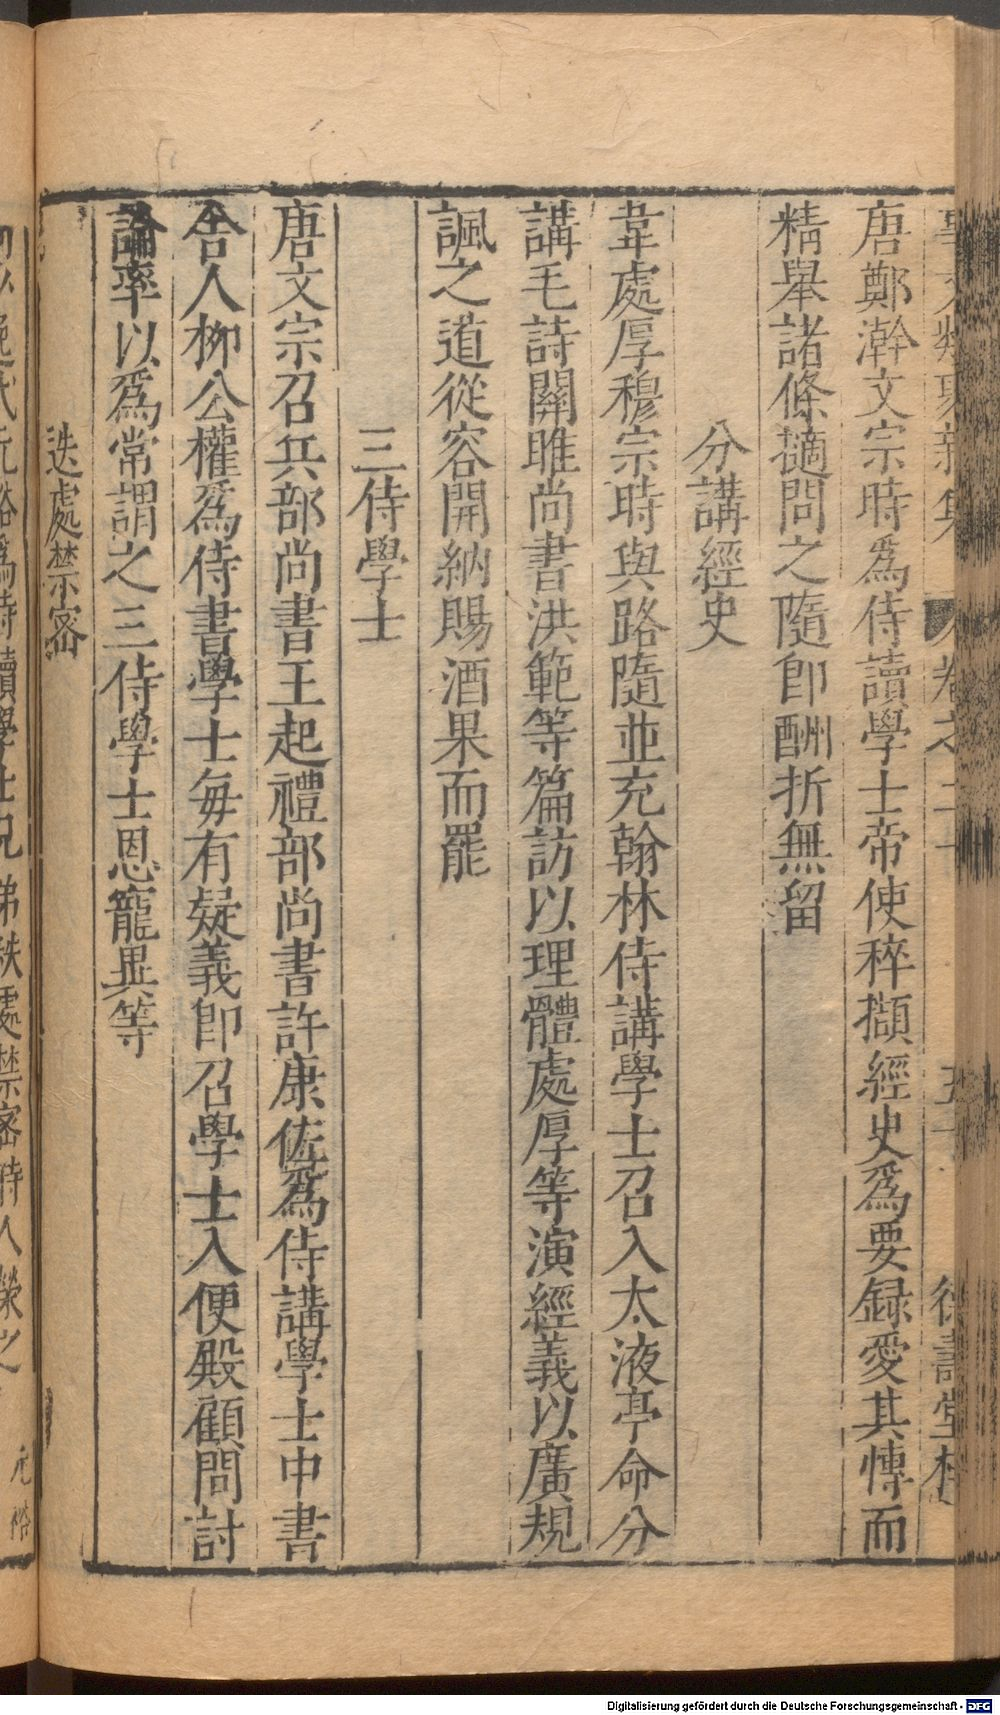 唐鄭澣文宗時爲侍讀學士帝使稡擷經史爲要録愛其愽而
精舉諸條擿問之隨卽酬折無留
分講經史
韋處厚穆宗時與路隨並充翰林侍講學士召入太液亭命分
講毛詩關雎尚書洪範等篇訪以理體處厚等演經義以廣規
諷之道從容開納賜酒果而罷
三侍學士
唐文宗召兵部尚書王起禮部尚書許康佐爲侍講學士中書
舍人柳公權爲侍書學士每有疑義卽召學士入便殿顧問討
論率以爲常謂之三侍學士恩寵異等
迭處禁宻
爲侍讀學士兄弟秩處禁宻時人榮之
Digitalisierung gefördert durch die Deutsche Forschungsgemeinschaft - DFG